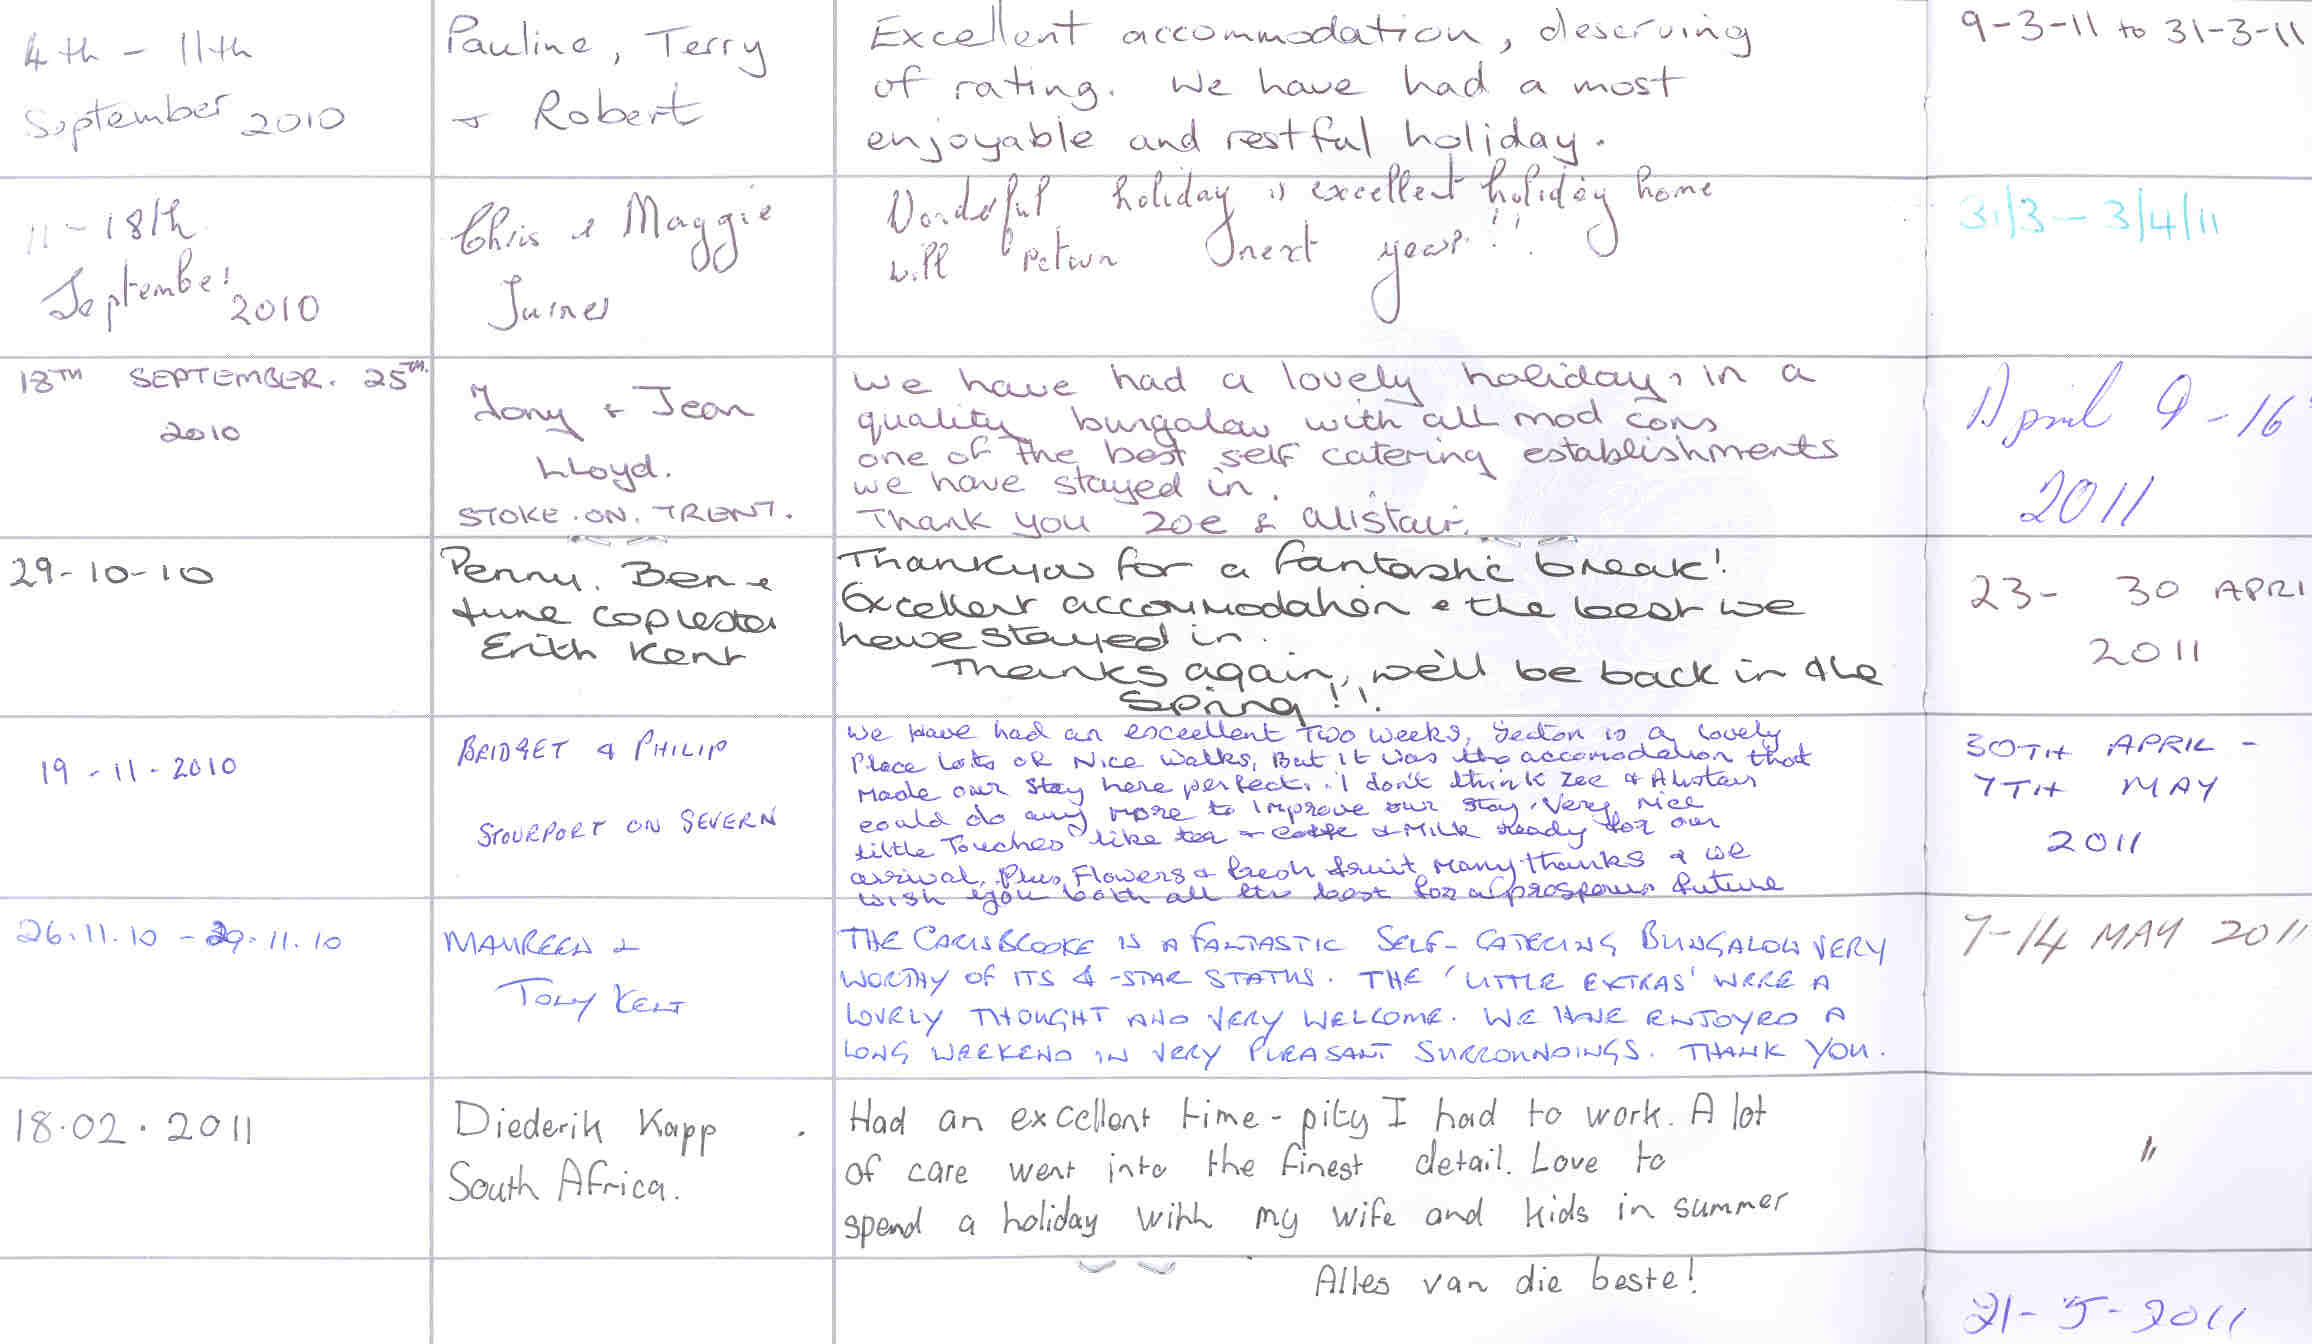 4th - 11th
September 2010
Pauline, Terry
+ Robert
Excellent accommodation, deserving
of rating. We have had a most
enjoyable and restful holiday.
11 - 18th
September 2010
Chris & Maggie
Wonderful holiday is excellent holiday home
will return next year!!
18TH SEPTEMBER. 25TH.
2010
Tony + Jean
Lloyd.
STOKE.ON.TRENT.
We have had a lovely holiday, in a
quality bungalow with all mod cons
one of the best self catering establishments
we have stayed in.
Thank you Zoe & Alistair.
29-10-10
Penny. Ben +
June
Erith Kent
Thankyou for a fantastic break!
Excellent accommodation & the best we
have stayed in.
Thanks again, we'll be back in the
Spring!!
19-11-2010
BRIDGET & PHILIP
STOURPORT ON SEVERN
We Have had an excellent Two weeks, Seaton is a lovely
Place Lots of Nice Walks, But it was the accomodation that
Made our stay here perfect. I don't think Zoe & Alistair
could do any more to Improve our stay. Very nice
little Touches like tea + coffe + Milk ready for our
arrival, Plus, Flowers & fresh fruit Many thanks & we
wish you both all the best for a prosperus future
26.11.10 - 29.11.10
MAUREEN &
TONY KENT
THE CARISBROOKE IS A FANTASTIC SELF-CATERING BUNGALOW VERY
WORTHY OF ITS 4-STAR STATUS. THE 'LITTLE EXTRAS' WERE A
LOVELY THOUGHT AND VERY WELCOME. WE HAVE ENJOYED A
LONG WEEKEND IN VERY PLEASANT SURROUNDINGS. THANK YOU.
18.02.2011
Diederik Kapp
South Africa.
Had an excellent time - pity I had to work. A lot
of care went into the finest detail. Love to
spend a holiday with my wife and kids in summer
Alles van die beste!
9-3-11 to 31-3-11
31/3 - 3/4/11
April 9-16
2011
23- 30 APRI
2011
30TH APRIL -
7TH MAY
2011
7-14 MAY 2011
"
21-5-2011